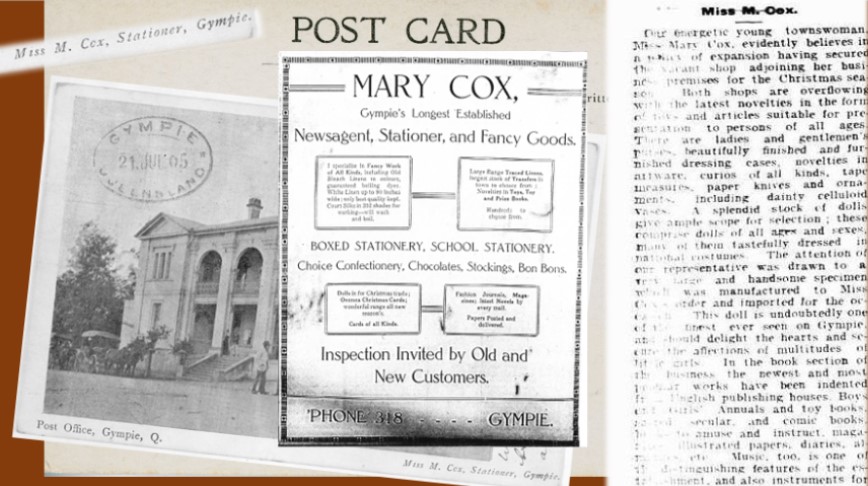 Miss M. Cox, Stationer, Gympie.
POST CARD
GYMPIE
21.JUL 05
QUEENSLAND
Post Office, Gympie, Q.
Miss M. Cox, Stationer, Gympie.
MARY COX,
Gympie's Longest Established
Newsagent, Stationer, and Fancy Goods.
I specialise in Fancy Work
of All Kinds, including Old
Bleach Linens in colours,
guaranteed boiling dyes.
White Linen up to 90 inches
wide; only best quality kept.
Court Silks in 352 shades for
working—will wash
and boil.
Large Range Traced Linens,
largest stock of Transfers in
town to choose from;
Novelties in Toys, Toy
and Prize Books.
Hundreds to
choose from.
BOXED STATIONERY, SCHOOL STATIONERY.
Choice Confectionery, Chocolates, Stockings, Bon Bons.
Dolls for Christmas trade;
Oversea Christmas Cards;
wonderful range all new
season's.
Cards of all Kinds.
Fashion Journals, Maga-
zines; latest Novels by
every mail.
Papers Posted and
delivered.
Inspection Invited by Old and
New Customers.
'PHONE 318 - - - - GYMPIE.
Miss M. Cox.
Our energetic young townswoman,
Miss Mary Cox, evidently believes in
a policy of expansion having secured
the vacant shop adjoining her busi-
ness premises for the Christmas sea-
son. Both shops are overflowing
with the latest novelties in the form
of toys and articles suitable for pre-
sentation to persons of all ages.
There are ladies and gentlemen's
purses, beautifully finished and fur-
nished dressing cases, novelties in
artware, curios of all kinds, tape
measures, paper knives and orna-
ments, including dainty celluloid
vases. A splendid stock of dolls
give ample scope for selection; these
comprise dolls of all ages and sexes,
many of them tastefully dressed in
national costumes. The attention of
our representative was drawn to a
very large and handsome specimen
which was manufactured to Miss
Cox's order and imported for the oc-
This doll is undoubtedly one
of the finest ever seen on Gympie
and should delight the hearts and se-
cure the affections of multitudes of
little girls. In the book section of
the business the newest and most
popular works have been indented
English publishing houses. Boys
and Girls' Annuals and toy books,
secular, and comic books,
to amuse and instruct, maga-
illustrated papers, diaries, al-
etc. Music, too, is one of
the distinguishing features of the es-
and also instruments for